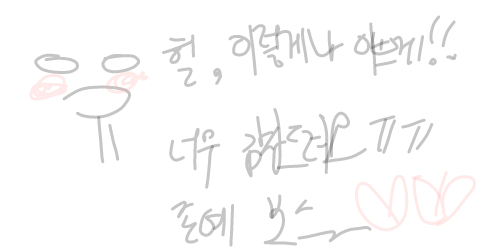 헐, 이렇게나 예쁘게!!
너무 감사드려요 ㅠㅠ
존예 보스